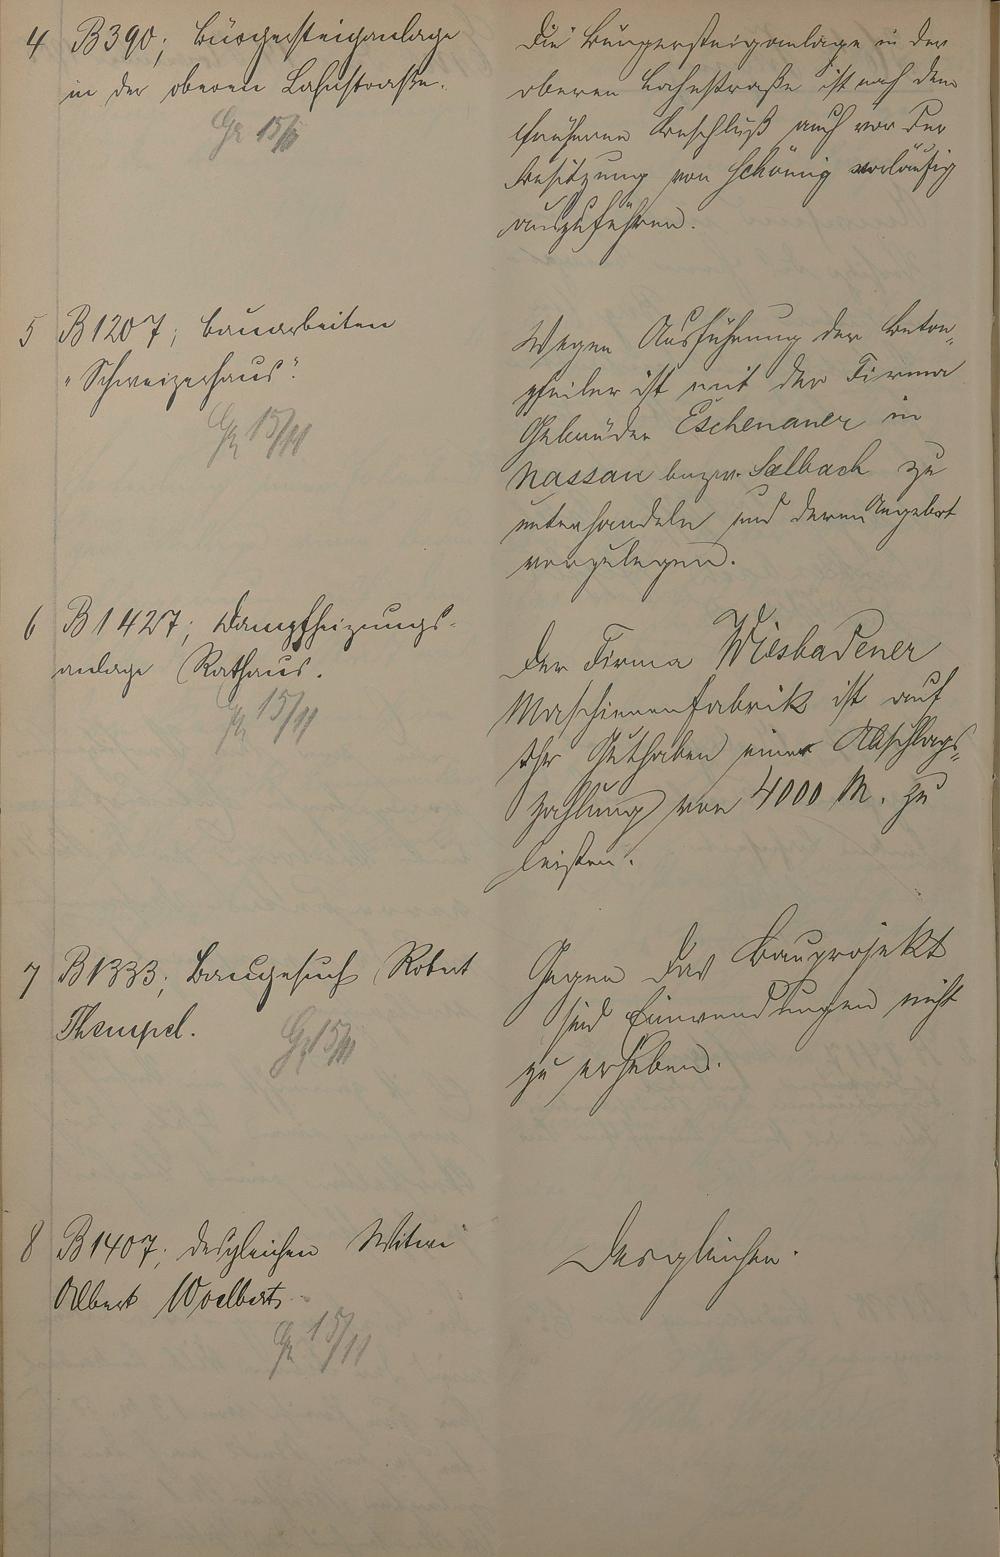 4 B 390; Bürgersteiganlage
in der oberen Lahnstraße.
Gz 15/11
Die Bürgersteiganlage in der
oberen Lahnstraße ist nach dem
früheren Beschluß auch vor der
Besitzung von Schönig vorläufig
auszuführen.
5 B 1207; Bauarbeiten
"Schweizerhaus".
Gz 15/11
Wegen Ausführung der Beton-
pfeiler ist mit der Firma
Gebrüder Eschenauer in
Nassau bezw. Selbach zu
unterhandeln und deren Angebot
vorzulegen.
6 B 1427; Dampfheizungs-
anlage Rathaus.
Gz 15/11
Der Firma Wiesbadener
Maschinenfabrik ist auf
Ihr Guthaben eine Abschlags-
zahlung von 4000 M. zu
leisten.
7 B 1333; Baugesuch Robert
Thempel.
Gz 15/11
Gegen das Bauprojekt
sind Einwendungen nicht
zu erheben.
8 B 1407; desgleichen Witwe
Albert Woelbert
Gz 15/11
Desgleichen.